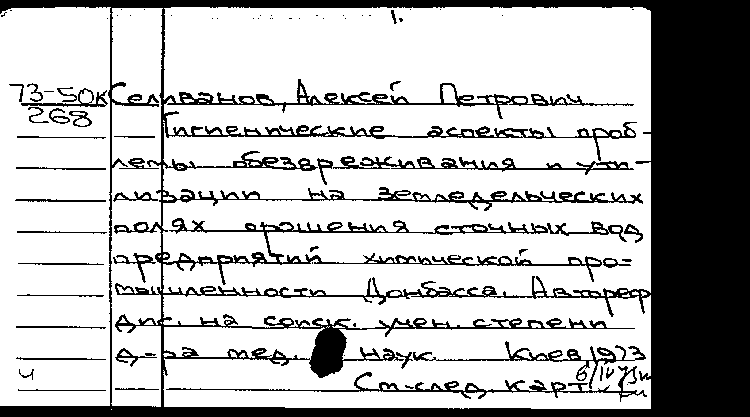 1.
73-50к Селиванов, Алексей Петрович.
268
Гигиенические аспекты проб-
лемы обезвреживания и ути-
лизации на земледельческих
полях орошения сточных вод
предприятий химической про-
мышленности Донбасса. Автореф
дис. на соиск. учен. степени
д-ра мед. наук. Киев, 1973
ч См. след. карт. 6/IV 73